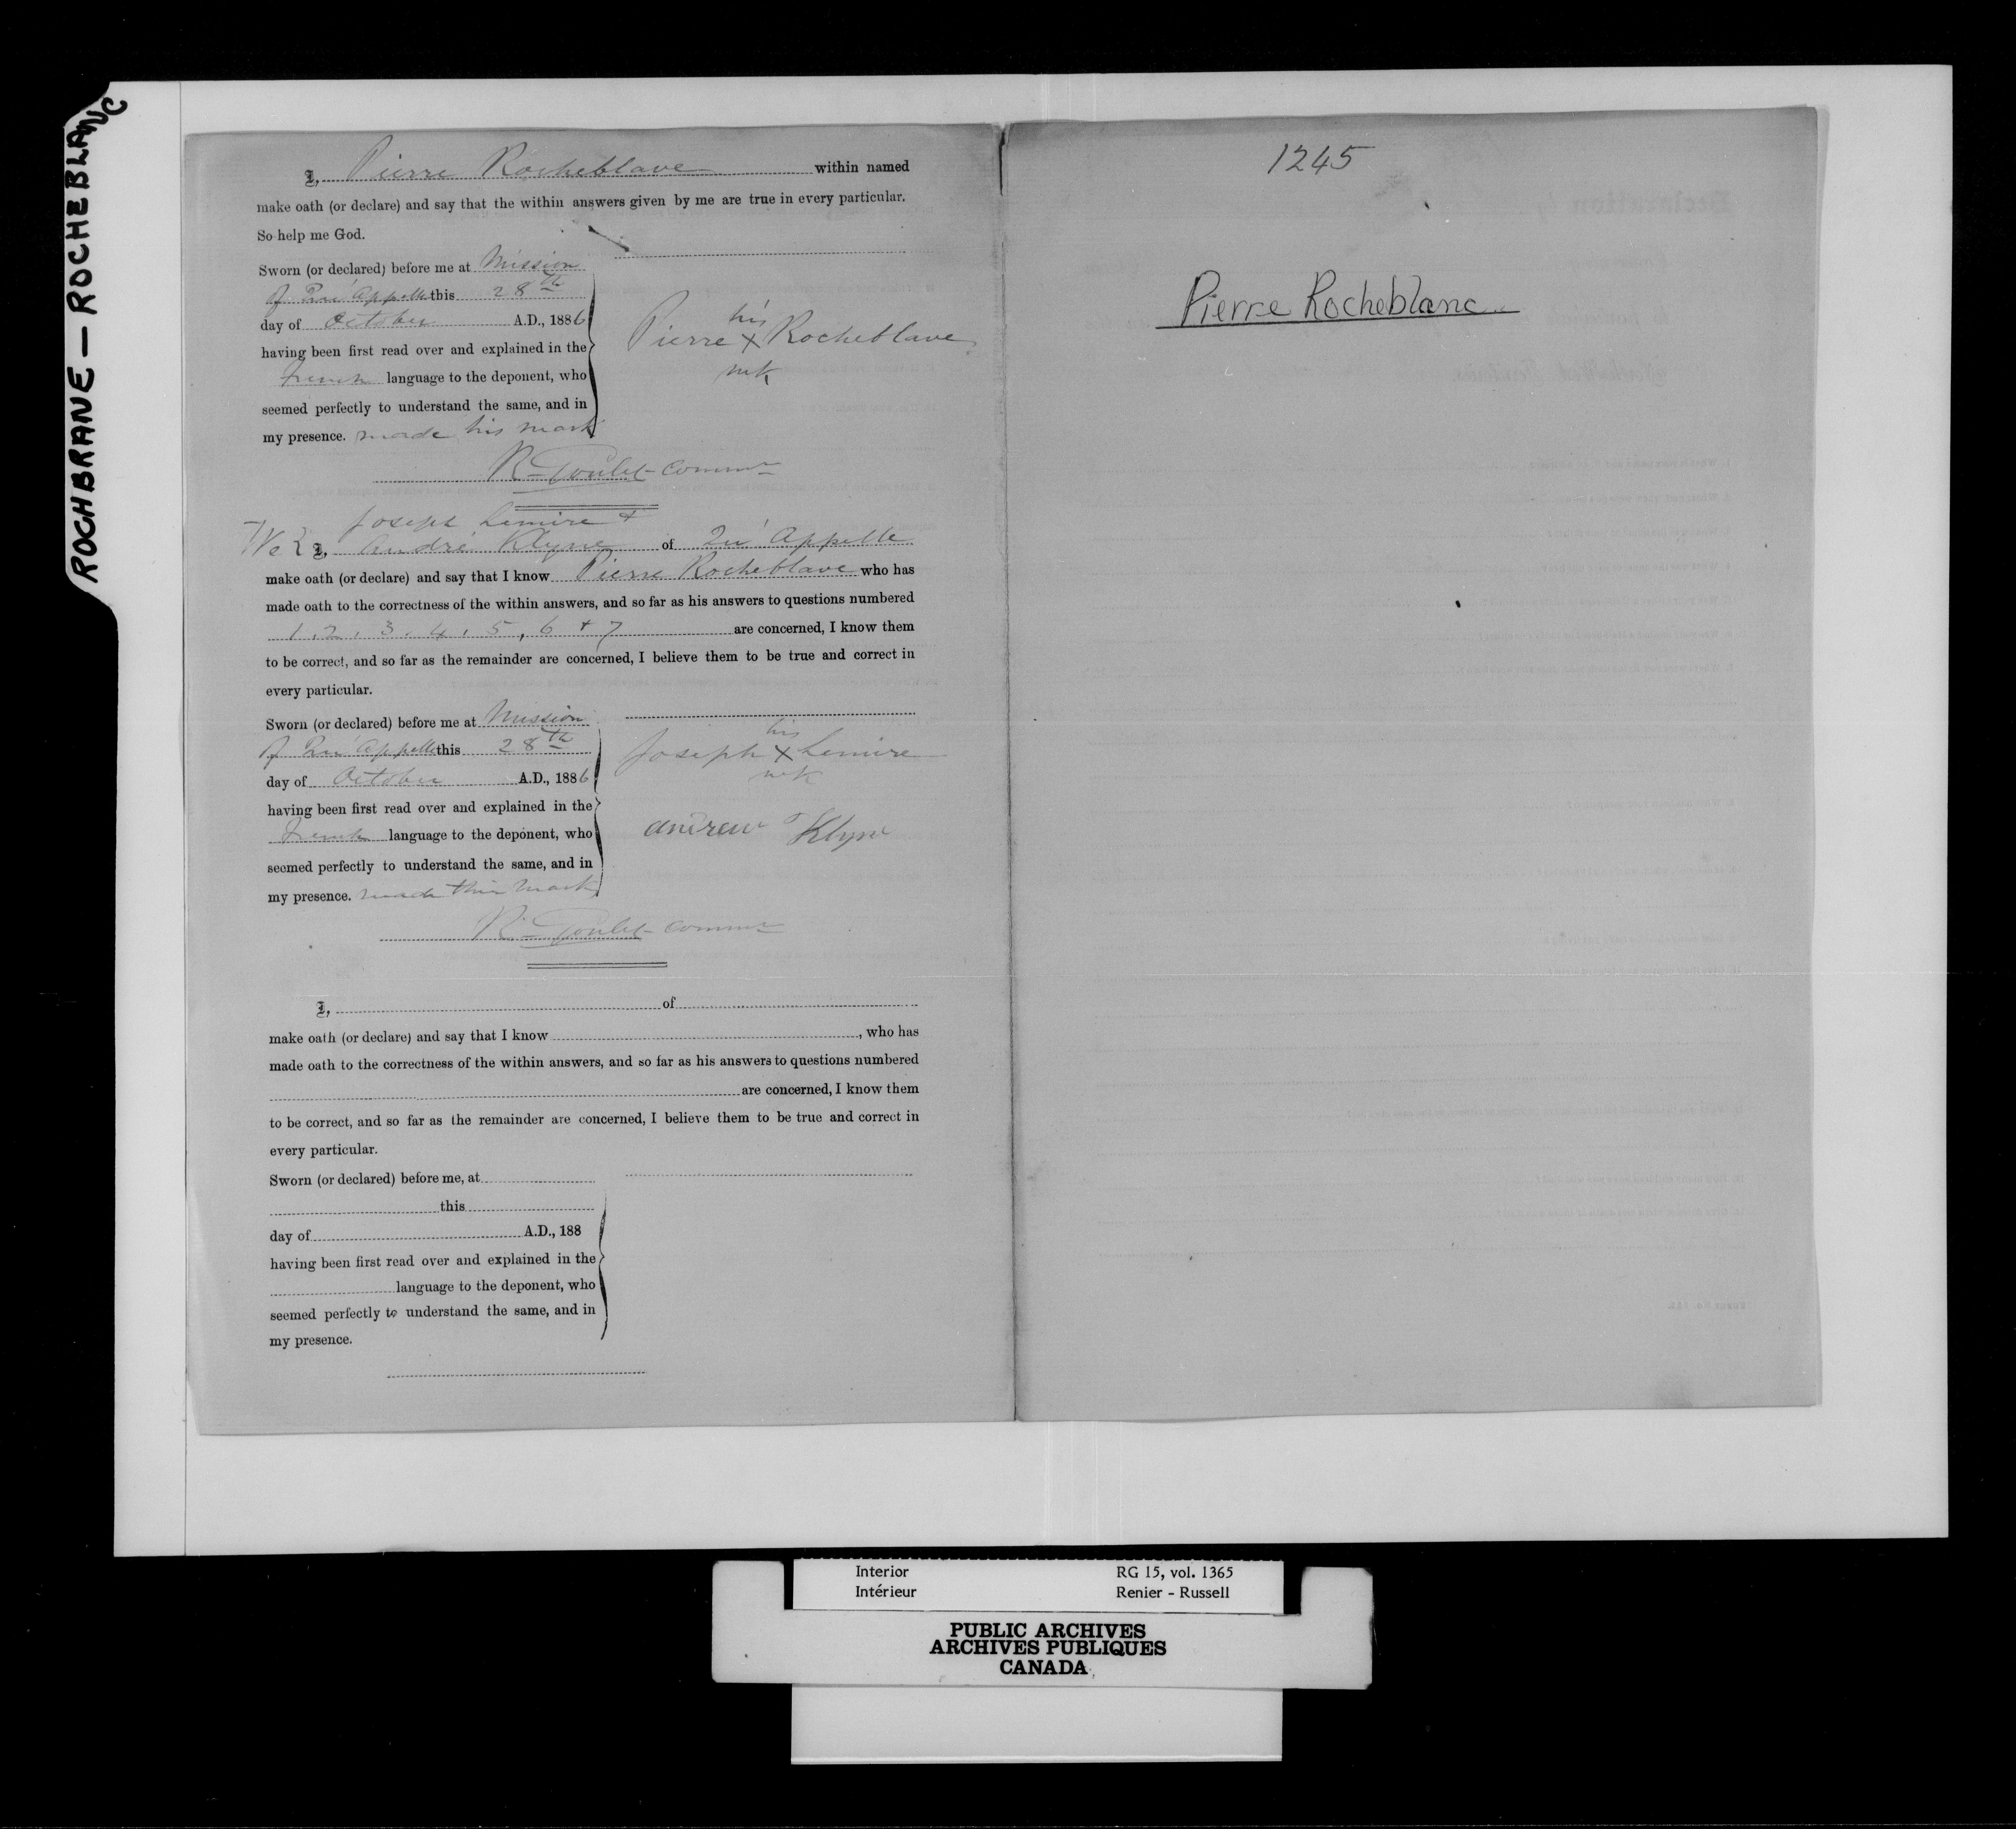 ROCHBRANE — ROCHEBLANC
I, Pierre Rocheblave within named
make oath (or declare) and say that the within answers given by me are true in every particular.
So help me God.
Sworn (or declared) before me at Mission
of Qu'Appelle this 28th
day of October A.D., 1886
having been first read over and explained in the
French language to the deponent, who
seemed perfectly to understand the same, and in
my presence. made his mark
his
Pierre X Rocheblave
mk
R. Goulet Commr
Joseph Lemire &
We { I, André Klyne of Qu'Appelle
make oath (or declare) and say that I know Pierre Rocheblave who has
made oath to the correctness of the within answers, and so far as his answers to questions numbered
1, 2, 3, 4, 5, 6 + 7 are concerned, I know them
to be correct, and so far as the remainder are concerned, I believe them to be true and correct in
every particular.
Sworn (or declared) before me at Mission
of Qu'Appelle this 28th
day of October A.D., 1886
having been first read over and explained in the
French language to the deponent, who
seemed perfectly to understand the same, and in
my presence. made their mark
his
Joseph X Lemire
mk
andrew Klyne
R. Goulet Commr
I, of
make oath (or declare) and say that I know , who has
made oath to the correctness of the within answers, and so far as his answers to questions numbered
are concerned, I know them
to be correct, and so far as the remainder are concerned, I believe them to be true and correct in
every particular.
Sworn (or declared) before me, at
this
day of A.D., 188
having been first read over and explained in the
language to the deponent, who
seemed perfectly to understand the same, and in
my presence.
1245
Pierre Rocheblanc
Interior RG 15, vol. 1365
Intérieur Renier - Russell
PUBLIC ARCHIVES
ARCHIVES PUBLIQUES
CANADA